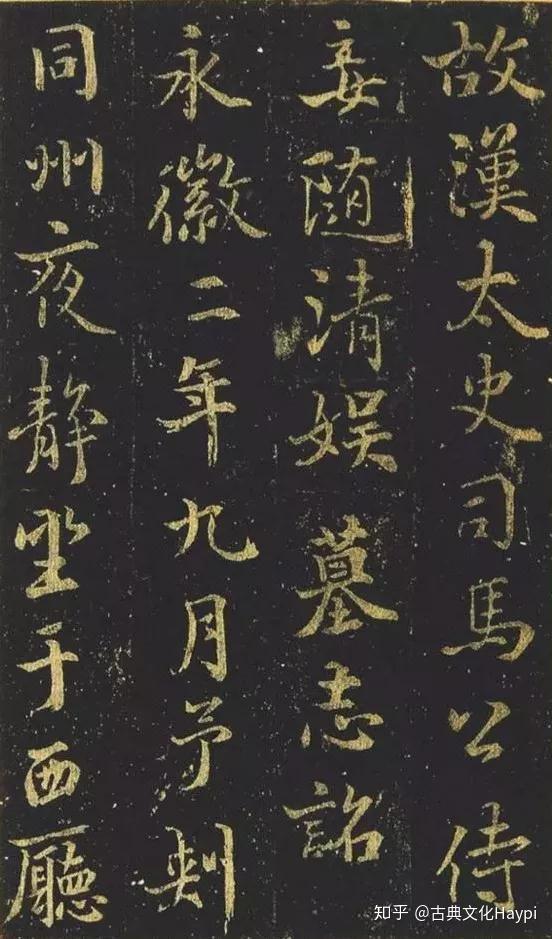 故漢太史司馬公侍
妾隨清娛墓志銘
永徽二年九月予刺
同州夜靜坐于西廳
知乎 @古典文化Haypi